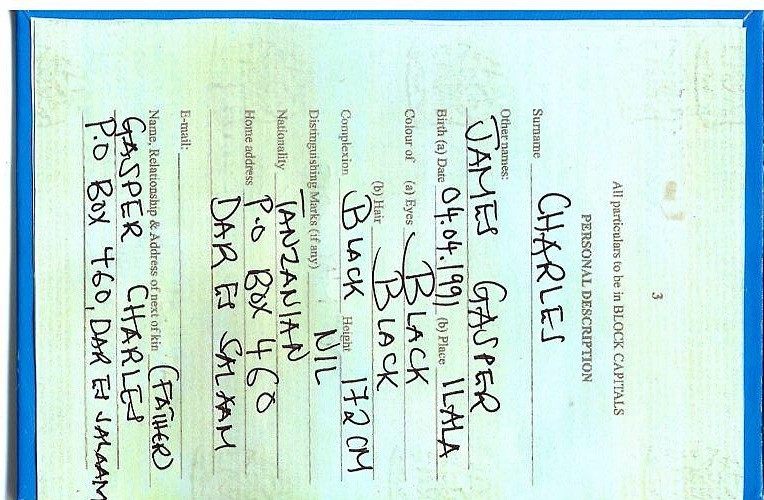 3
All particulars to be in BLOCK CAPITALS
PERSONAL DESCRIPTION
Surname CHARLES
Other names: JAMES GASPER
Birth (a) Date 04.04.1991 (b) Place ILALA
Colour of (a) Eyes BLACK
(b) Hair BLACK
Complexion BLACK Height 172 CM
Distinguishing Marks (if any) NIL
Nationality TANZANIAN
Home address P.O BOX 460
DAR ES SALAAM
E-mail:
Name, Relationship & Address of next of kin (FATHER)
GASPER CHARLES
P.O BOX 460, DAR ES SALAAM